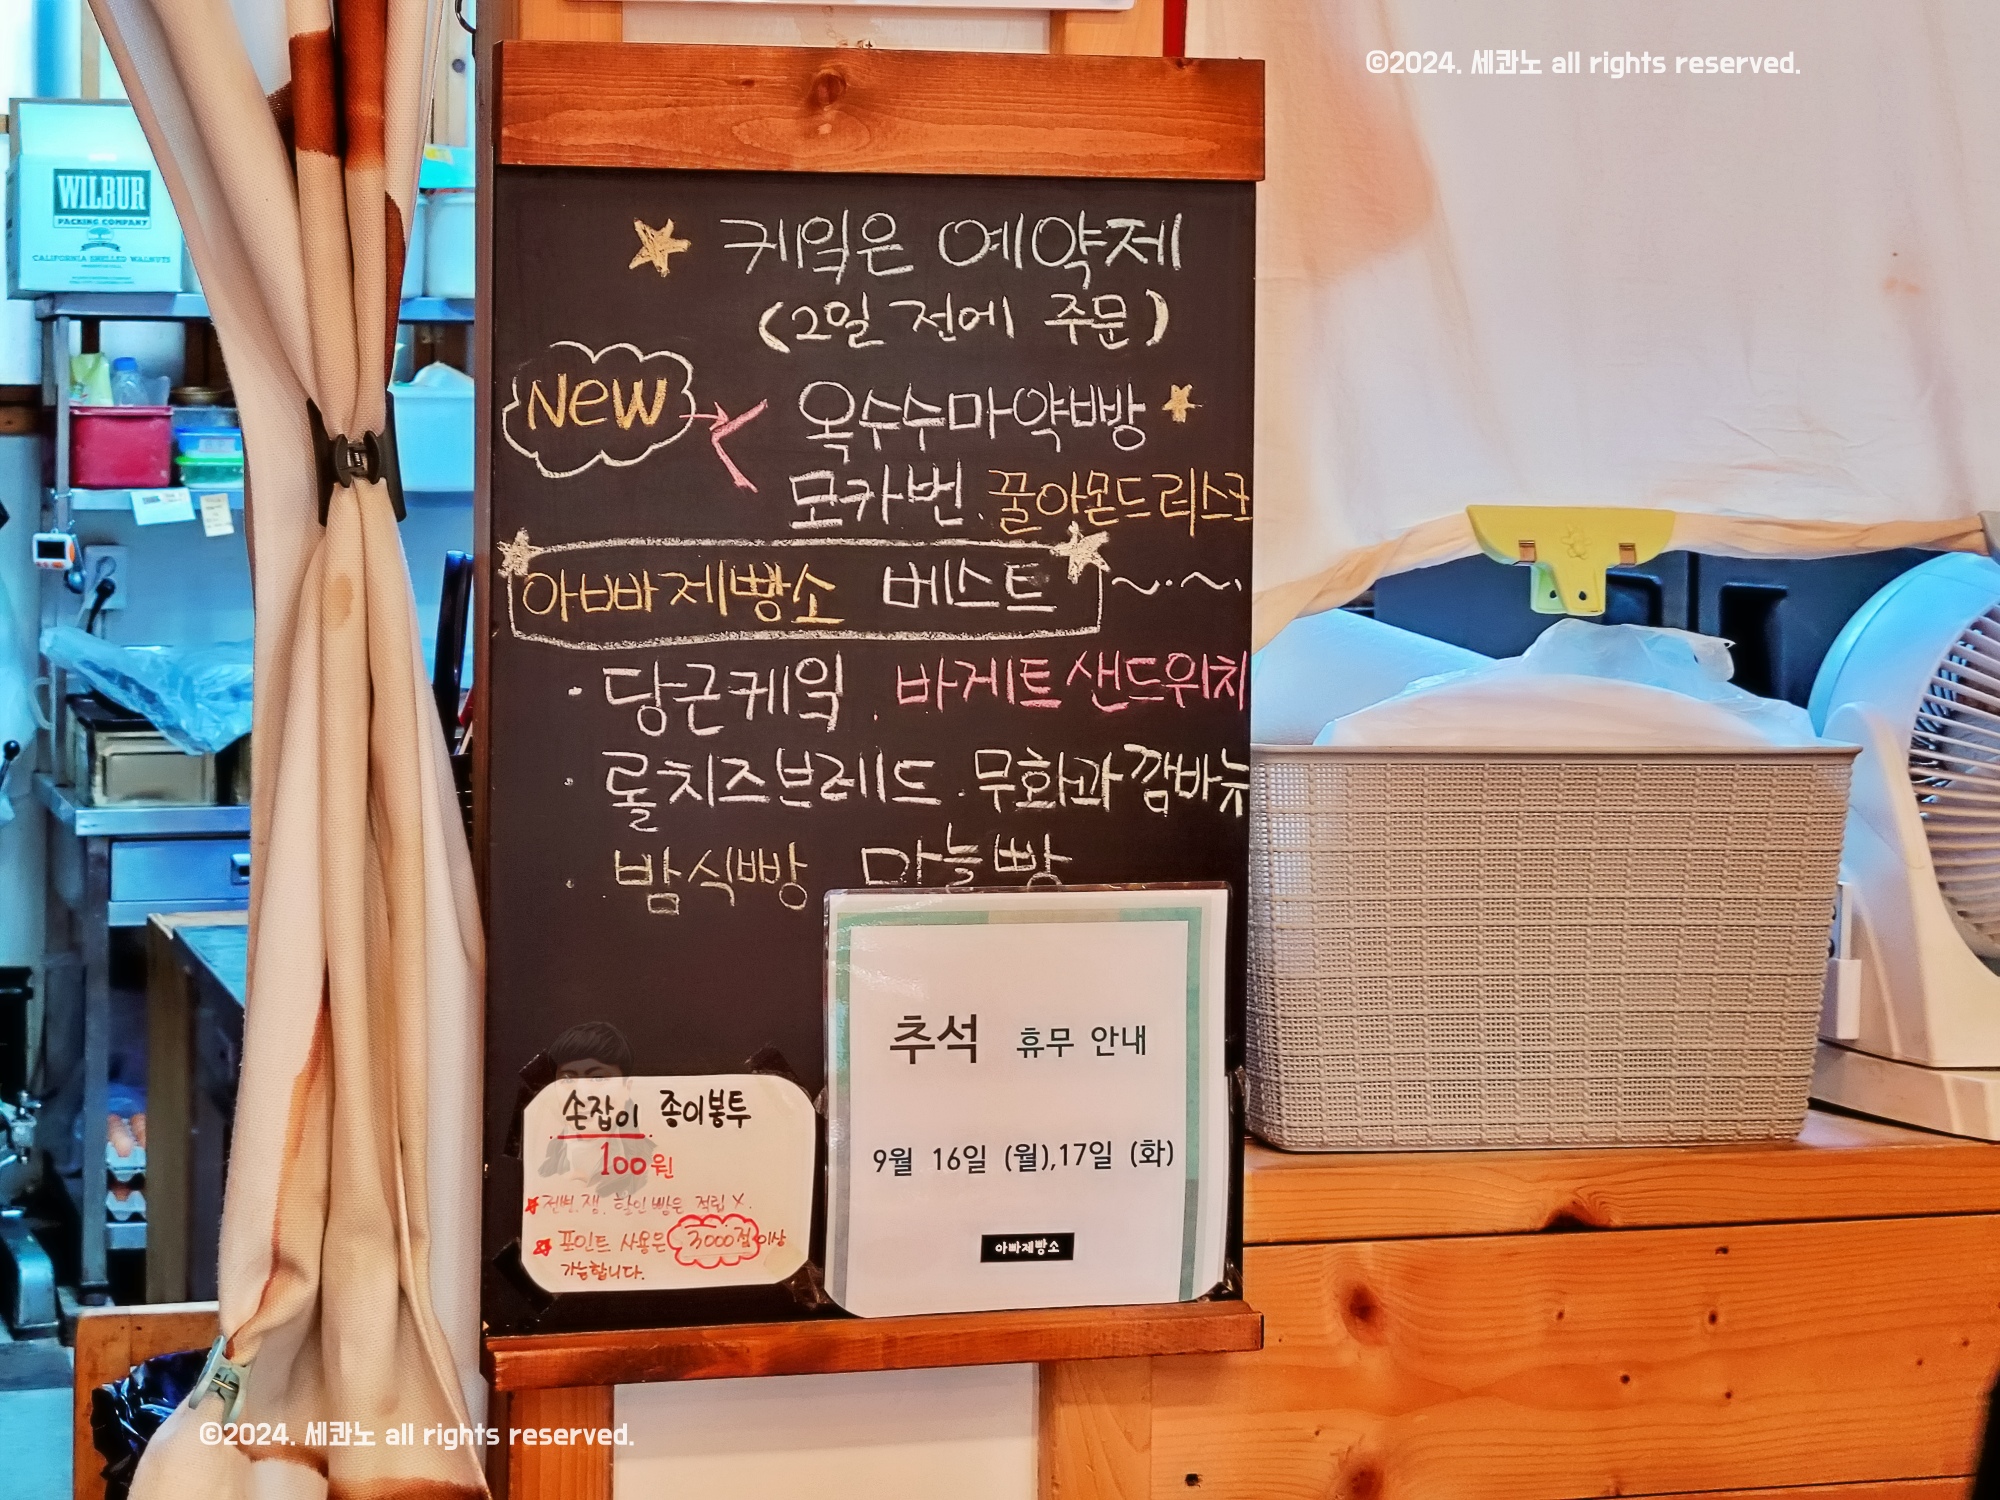 ©2024. 세콰노 all rights reserved.
WILBUR
PACKING COMPANY
CALIFORNIA SHELLED WALNUTS
케익은 예약제
(2일 전에 주문)
New
옥수수마약빵
모카번. 꿀아몬드리스크
아빠제빵소 베스트 ~.~.
· 당근케익 . 바게트샌드위치
· 롤치즈브레드 · 무화과깜바뉴
· 밤식빵 마늘빵
추석 휴무 안내
9월 16일 (월),17일 (화)
아빠제빵소
손잡이 종이봉투
100원
전병. 잼. 할인빵은 적립 X.
포인트 사용은 3000점 이상
가능합니다.
©2024. 세콰노 all rights reserved.